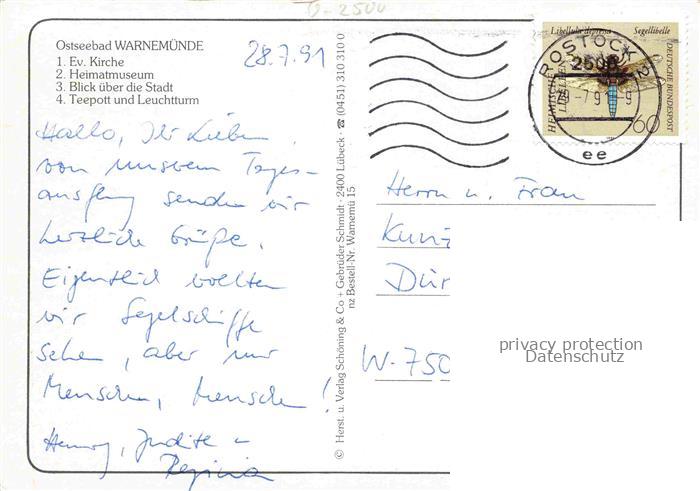 D-2500
Ostseebad WARNEMÜNDE
1. Ev. Kirche
2. Heimatmuseum
3. Blick über die Stadt
4. Teepott und Leuchtturm
28.7.91
Hallo, Ihr Lieben,
von unserem Tages-
ausflug senden wir
herzliche Grüße.
Eigentlich wollten
wir Segelschiffe
sehen, aber nur
Menschen, Menschen!
Henry, Judith u
Regina
© Herst. u. Verlag Schöning & Co + Gebrüder Schmidt · 2400 Lübeck · ☎ (0451) 310 310 0
nz Bestell-Nr. Warnemü 15
Libellula depressa Segellibelle
HEIMISCHE
DEUTSCHE BUNDESPOST
60
ROSTOCK
2500
ee
Herrn u. Frau
Kunz
Dür
W-750
privacy protection
Datenschutz